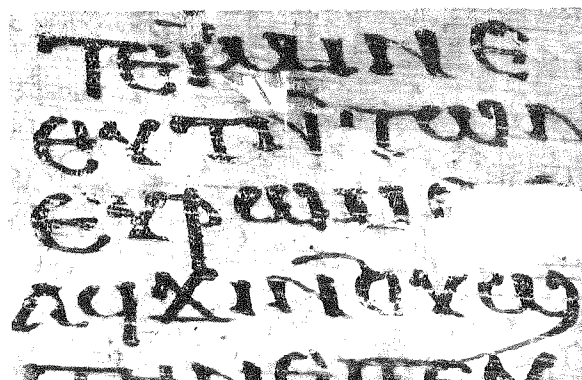 ⲧⲉⲓⲙⲓⲛⲉ
ⲉⲩⲧⲛ̅ⲧⲱⲛ
ⲉⲩⲣⲱⲙⲉ
ⲁϥϫⲓⲛ̅ⲟⲩϣ